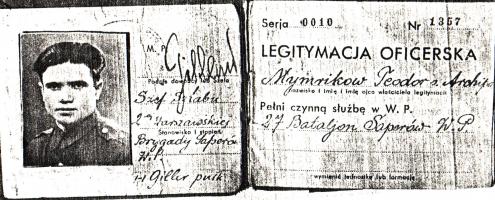 M. P.
Podpis dowódcy lub Szefa
Szef Sztabu
2ej Warszawskiej
Stanowisko i stopień
Brygady Saperów
W.P.
Giller
Serja 0010 Nr 1357
LEGITYMACJA OFICERSKA
Mymrikow Teodor s.
nazwisko i imię i imię ojca właściciela legitymacji
Pełni czynną służbę w W. P.
27 Bataljon Saperów W.P.
wymienić jednostkę lub formację